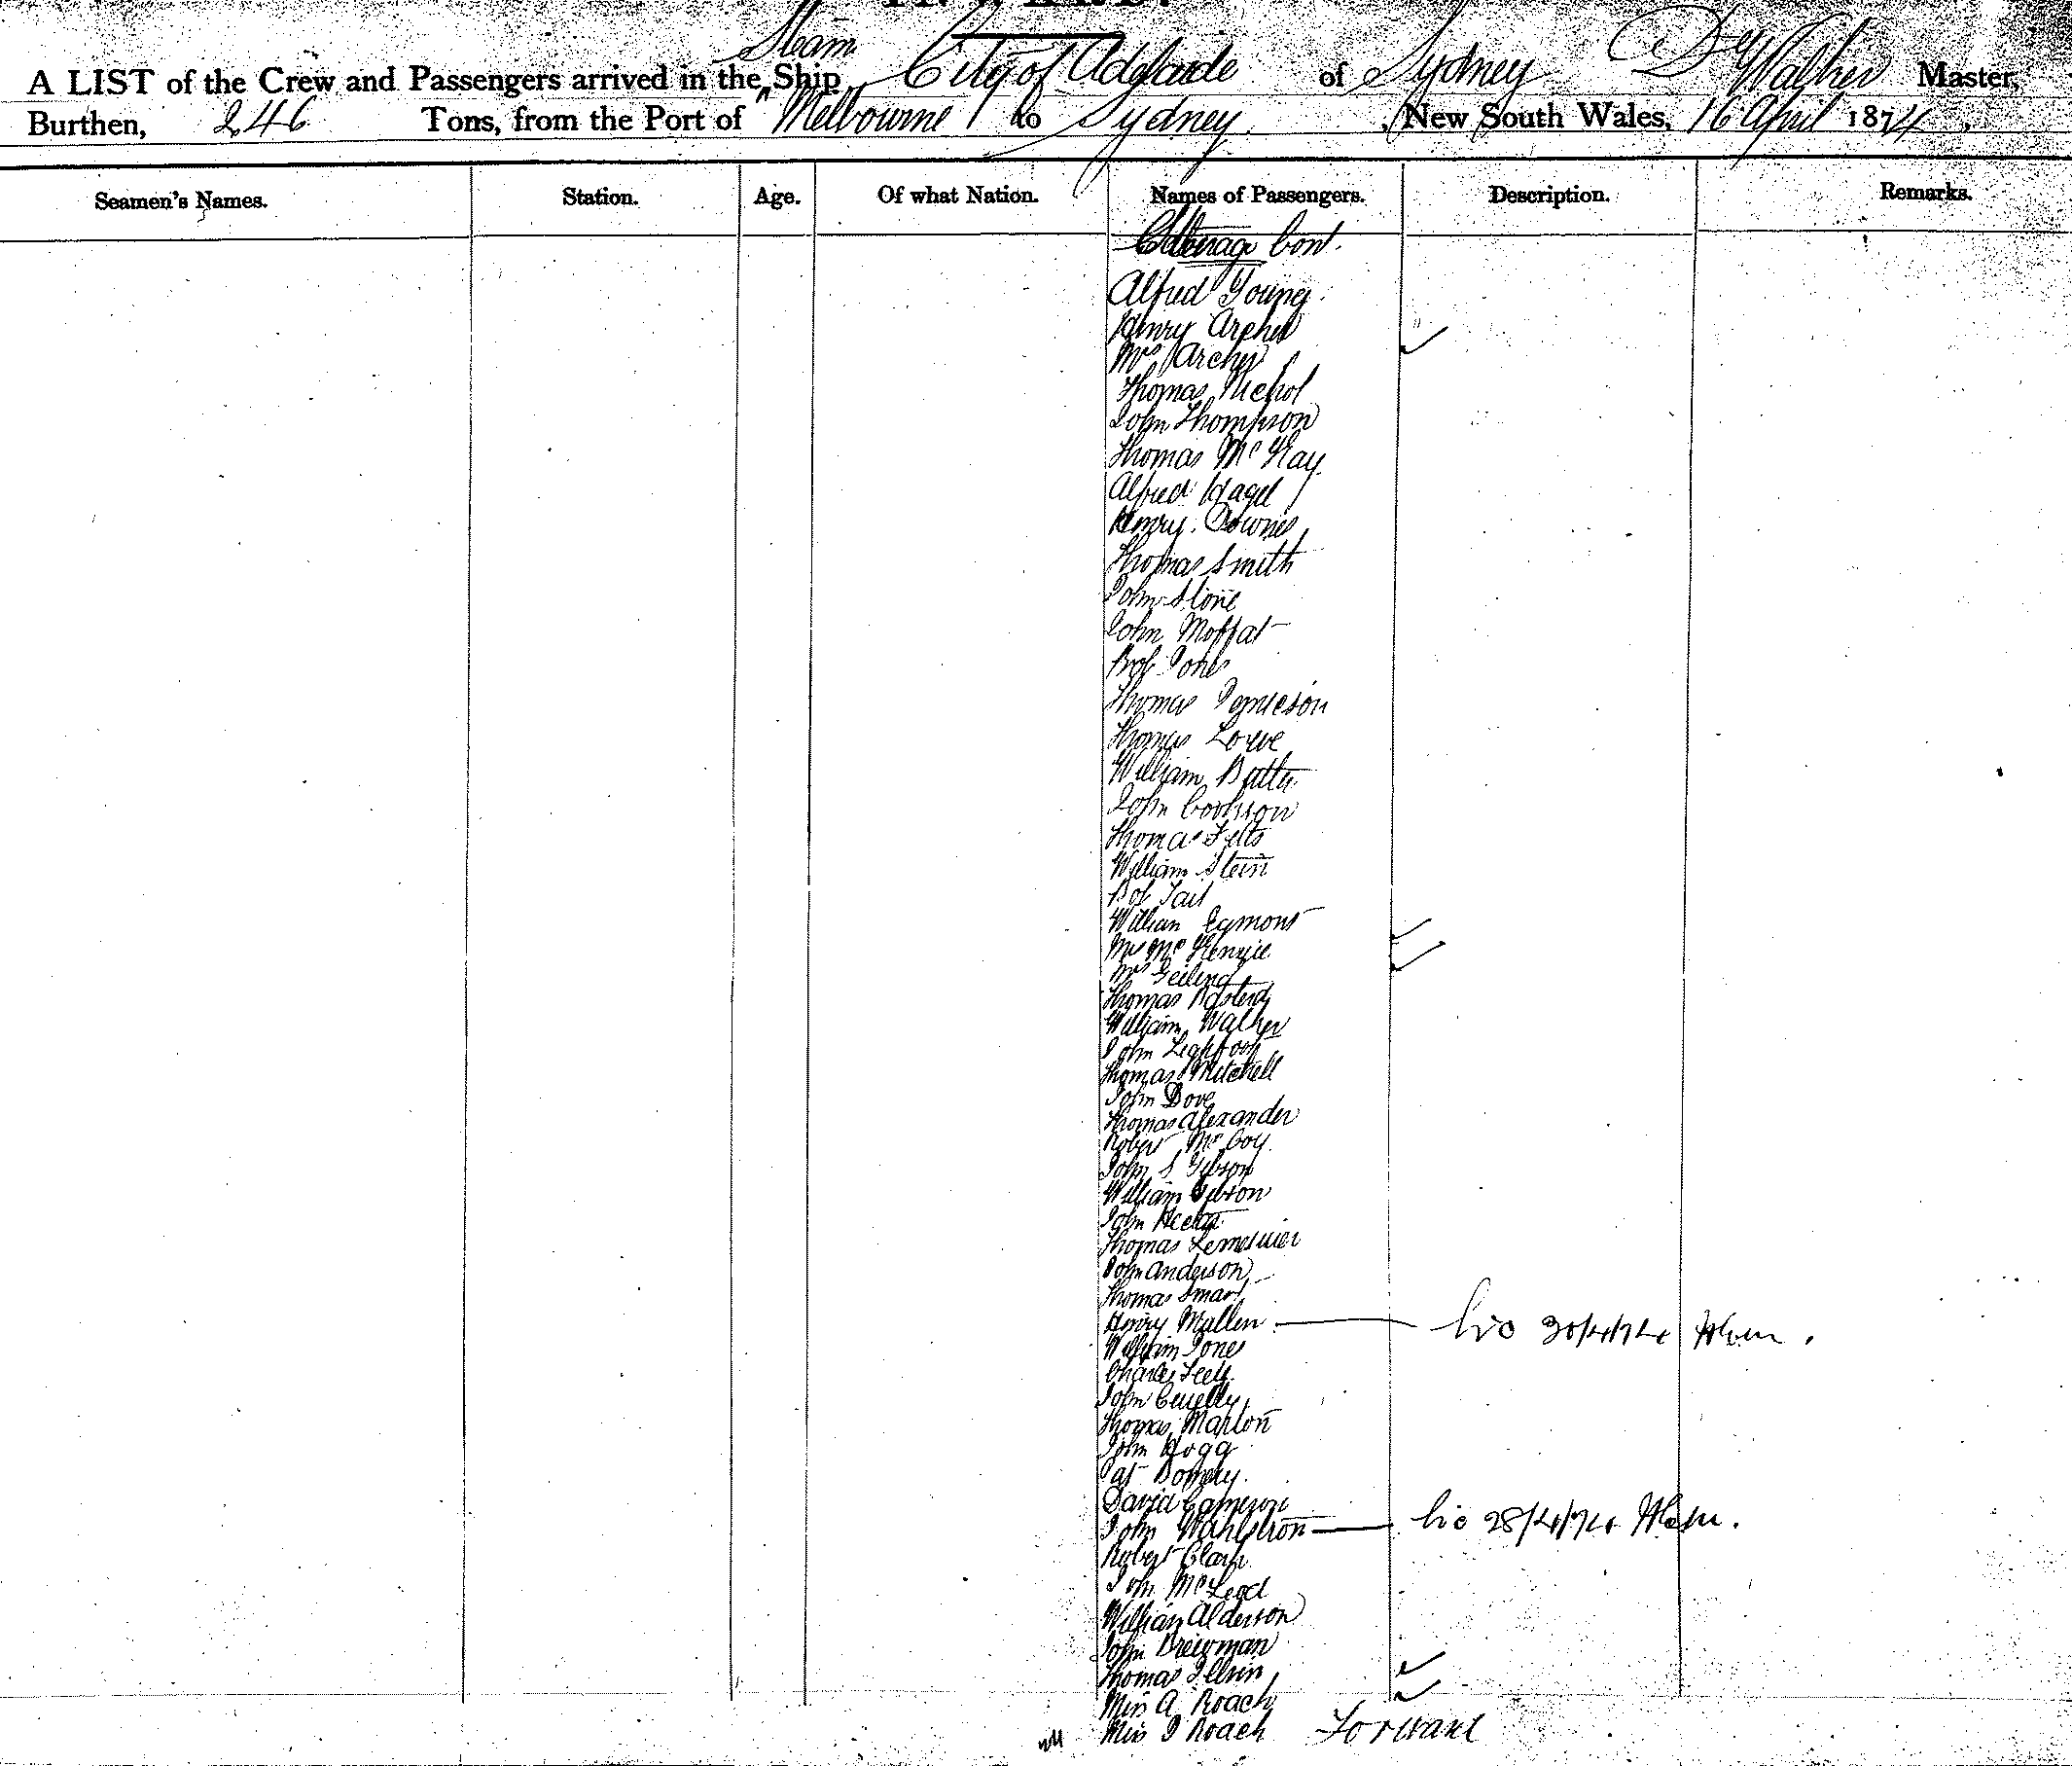 Steam
A LIST of the Crew and Passengers arrived in the Ship City of Adelaide of Sydney Walker Master,
Burthen, 246 Tons, from the Port of Melbourne to Sydney, New South Wales, 16 April 1874,
Seamen's Names. Station. Age. Of what Nation. Names of Passengers. Description. Remarks.
Steerage Cont.
Alfred Young
Henry Archer
Mrs Archer
Thomas Nichol
John Thompson
Thomas McKay
Alfred Hagel
Henry Downes
Thomas Smith
John Stone
John Moffat
Bob Jones
Thomas Jamieson
Thomas Lowe
William Batter
John Cookson
Thomas Felts
William Stein
Bob Tait
William Egmont
Mrs McKenzie
Mrs Geiling
Thomas
William Walker
John Lightfoot
Thomas Mitchell
John Dove
Thomas Alexander
Robert McCoy
John S Gibson
William Gibson
John
Thomas Lemesurier
John Anderson
Thomas Smart
Henry Mullen 30/4/74
William Jones
Charles
John
Thomas Marlon
John Hogg
Pat
David Cameron
John Wahlstron 28/4/74
Robert Clark
John McLeod
William Alderson
John Brewman
Thomas
Miss A Roach
Miss J Roach Forward